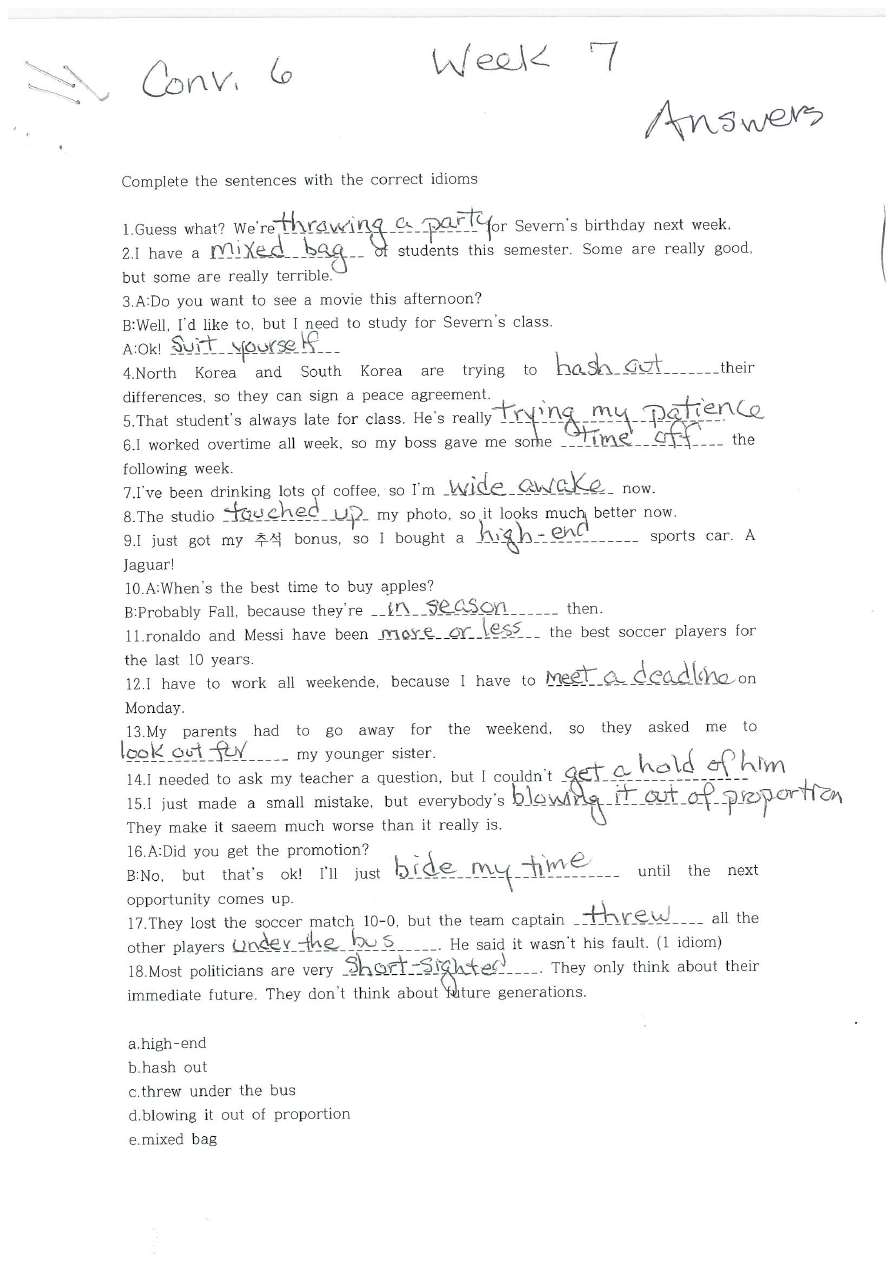 Conv. 6 Week 7
Answers
Complete the sentences with the correct idioms
1.Guess what? We're throwing a party for Severn's birthday next week.
2.I have a mixed bag of students this semester. Some are really good,
but some are really terrible.
3.A:Do you want to see a movie this afternoon?
B:Well, I'd like to, but I need to study for Severn's class.
A:Ok! Suit yourself
4.North Korea and South Korea are trying to hash out their
differences, so they can sign a peace agreement.
5.That student's always late for class. He's really trying my patience
6.I worked overtime all week, so my boss gave me some time off the
following week.
7.I've been drinking lots of coffee, so I'm wide awake now.
8.The studio touched up my photo, so it looks much better now.
9.I just got my 추석 bonus, so I bought a high-end sports car. A
Jaguar!
10.A:When's the best time to buy apples?
B:Probably Fall, because they're in season then.
11.ronaldo and Messi have been more or less the best soccer players for
the last 10 years.
12.I have to work all weekende, because I have to meet a deadline on
Monday.
13.My parents had to go away for the weekend, so they asked me to
look out for my younger sister.
14.I needed to ask my teacher a question, but I couldn't get a hold of him
15.I just made a small mistake, but everybody's blowing it out of proportion
They make it saeem much worse than it really is.
16.A:Did you get the promotion?
B:No, but that's ok! I'll just bide my time until the next
opportunity comes up.
17.They lost the soccer match 10-0, but the team captain threw all the
other players under the bus. He said it wasn't his fault. (1 idiom)
18.Most politicians are very Short-Sighted. They only think about their
immediate future. They don't think about future generations.
a.high-end
b.hash out
c.threw under the bus
d.blowing it out of proportion
e.mixed bag